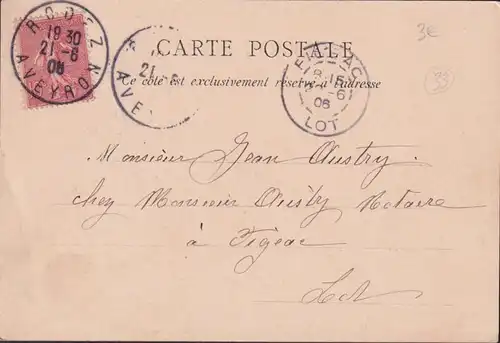 RODEZ
19 30
21 - 6
06
AVEYRON
21
AVE
CARTE POSTALE
Ce côté est exclusivement réservé à l'adresse
FIGEAC
8 15
6
06
LOT
3€
35
Monsieur Jean Austry
chez Monsieur Austry Notaire
à Figeac
Lot